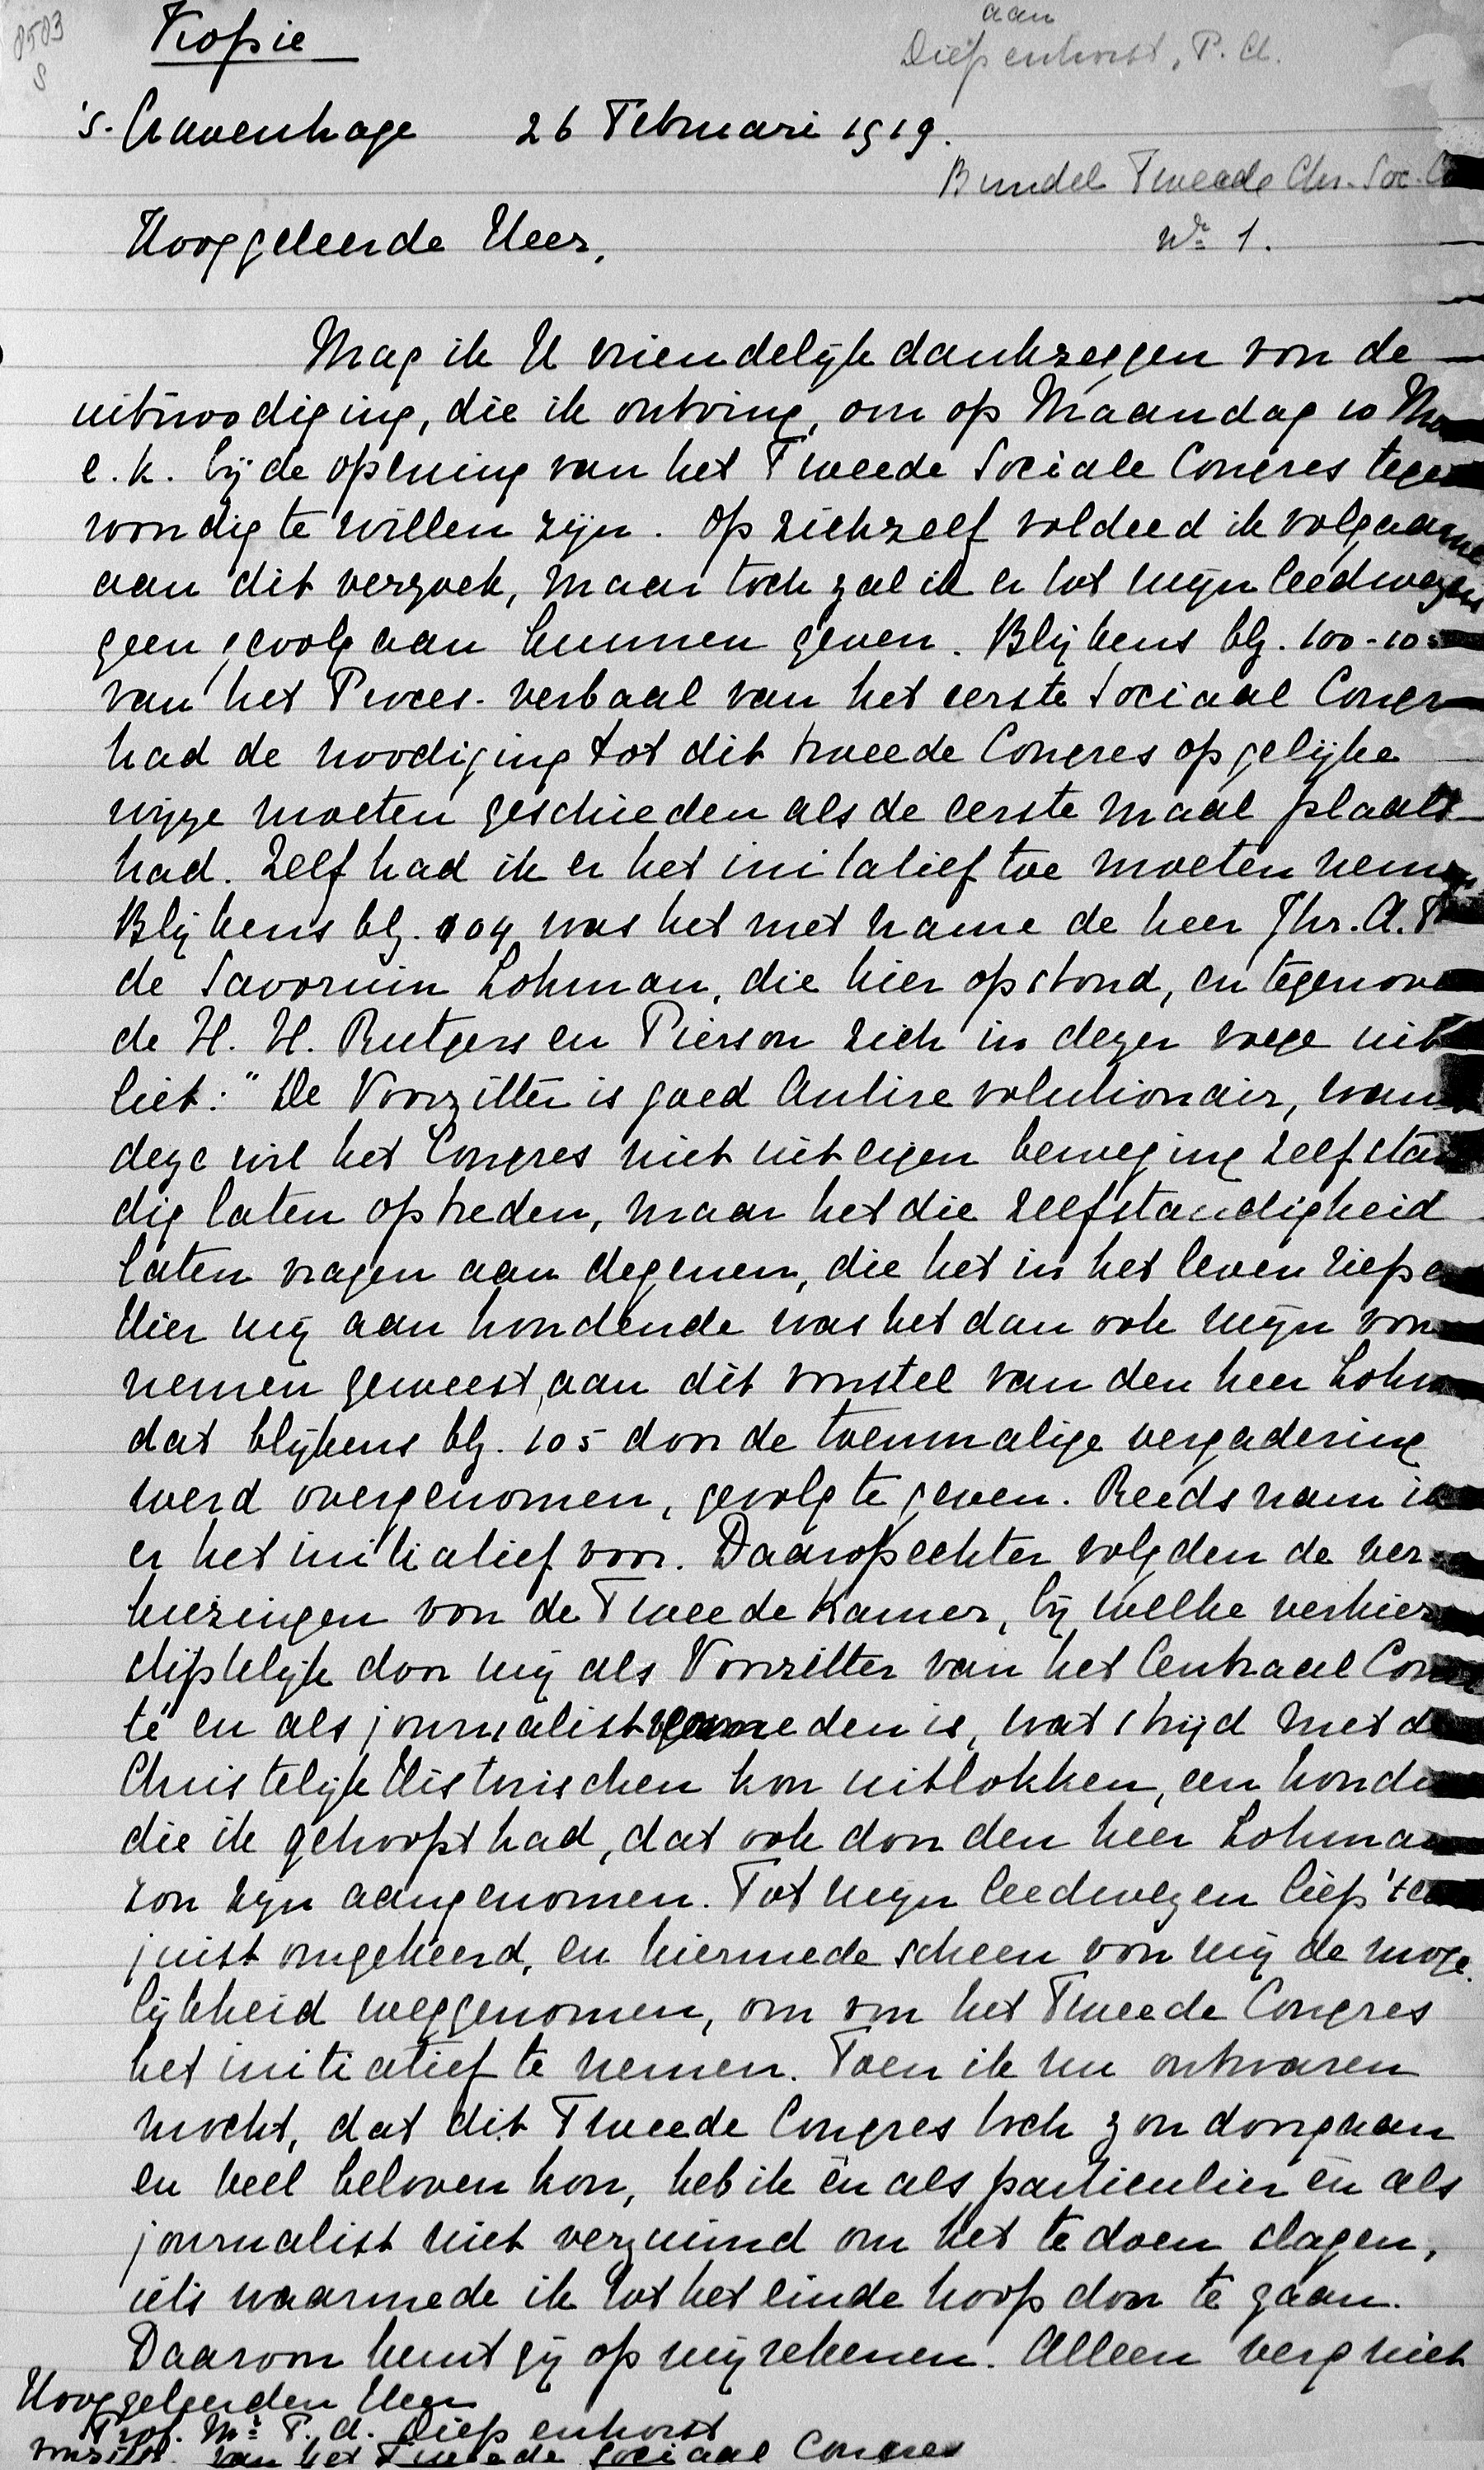 8583
S
Kopie
aan
Diepenhorst, P. A.
's-Gravenhage 26 Februari 1919.
Bundel Tweede Chr. Soc. C
No 1.
Hooggeleerde Heer,
Mag ik U vriendelijk dankzeggen voor de
uitnoodiging, die ik ontving, om op Maandag 10 Ma
e.k. bij de opening van het Tweede Sociale Congres tegen
woordig te willen zijn. Op zichzelf voldeed ik volgaarne
aan dit verzoek, maar toch zal ik er tot mijn leedwezen
geen gevolg aan kunnen geven. Blijkens blz. 100-10
van het Proces-verbaal van het eerste Sociaal Congr
had de noodiging tot dit tweede Congres op gelijke
wijze moeten geschieden als de eerste maal plaats
had. Zelf had ik er het initatief toe moeten nemen
Blijkens blz. 104 was het met name de heer Jhr. A. F
de Savornin Lohman, die hier opstond, en tegenove
de H. H. Rutgers en Pierson zich in dezer voege uit
liet: "De Voorzitter is goed Antirevolutionair, wan
deze wil het Congres niet uit eigen beweging zelfstan
dig laten optreden, maar het die zelfstandigheid
laten vragen aan degenen, die het in het leven riepe
Hier mij aan houdende was het dan ook mijn voor
nemen geweest, aan dit voorstel van den heer Lohm
dat blijkens blz. 105 door de toenmalige vergadering
werd overgenomen, gevolg te geven. Reeds nam ik
er het initiatief voor. Daarop echter volgden de ver-
kiezingen voor de Tweede Kamer, bij welke verkiez
stiptelijk door mij als Voorzitter van het Centraal Com
té en als journalist vermeden is, wat strijd met d
Christelijk Historischen kon uitlokken, een houdi
die ik gehoopt had, dat ook door den heer Lohma
zou zijn aangenomen. Tot mijn leedwezen liep 't
juist omgekeerd, en hiermede scheen voor mij de moge-
lijkheid weggenomen, om voor het Tweede Congres
het initiatief te nemen. Toen ik nu ontwaren
mocht, dat dit Tweede Congres toch zou doorgaan
en veel beloven kon, heb ik èn als particulier èn als
journalist niet verzuimd om het te doen slagen,
iets waarmede ik tot het einde hoop door te gaan.
Daarom kunt gij op mij rekenen. Alleen verg niet
Hooggeleerden Heer
Prof. Mr. P. A. Diepenhorst
voorzitter van het Tweede Sociaal Congres